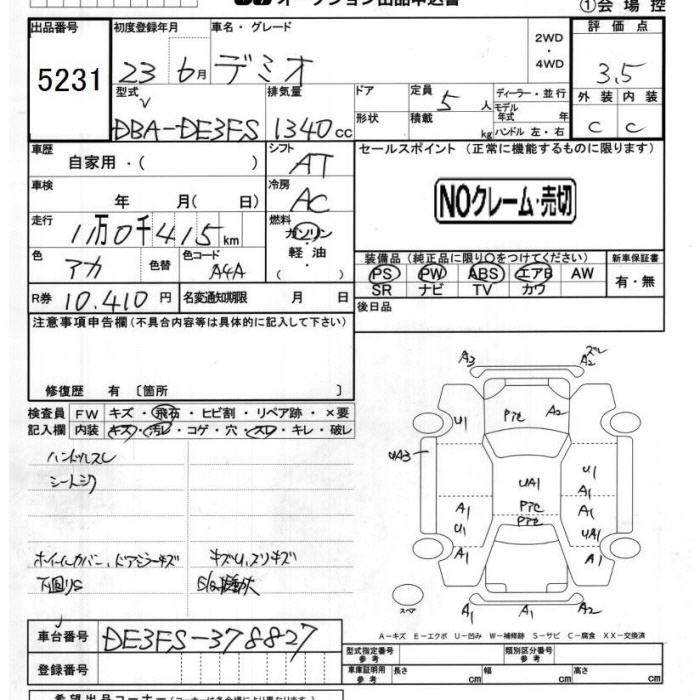 オークション出品申込書
①会場控
出品番号
5231
初度登録年月
23 6月
車名・グレード
デミオ
2WD
・
4WD
評価点
3.5
外装 内装
C C
型式
DBA-DE3FS
排気量
1340cc
ドア
形状
定員
5人
積載
kg
ディーラー・並行
モデル
年式 年
ハンドル 左・右
車歴
自家用・( )
シフト
AT
車検
年 月( 日)
冷房
AC
走行
11万0千415km
燃料
ガソリン
・
軽油
( )
色
アカ
色替
色コード
A4A
R券 10.410円
名変通知期限 月 日
セールスポイント (正常に機能するものに限ります)
NOクレーム・売切
装備品 (純正品に限り○をつけてください)
新車保証書
PS PW ABS エアB AW
SR ナビ TV カワ
有・無
後日品
注意事項申告欄 (不具合内容等は具体的に記入して下さい)
修復歴 有 〔箇所 〕
検査員
記入欄
FW キズ・飛石・ヒビ割・リペア跡・×要
内装 キズ・汚レ・コゲ・穴・スレ・キレ・破レ
ハンドルスレ
シートシワ
ホイールカバー、ドアミラーキズ
キズU,スリキズ
下回りS
A3
A2 ズレ
U1
Pﾃﾋ
A2
UA3
UA1
U1
A1
A1
Pﾃﾋ
A1
U1
Pﾃﾋ
UA1
A1
A1
A1
A1
A2
スペア
A-キズ E-エクボ U-凹み W-補修跡 S-サビ C-腐食 XX-交換済
車台番号
DE3FS-378827
登録番号
型式指定番号
参考
類別区分番号
参考
車庫証明用
参考
長さ cm
幅 cm
高さ cm
希望出品コーナー(コーナーは各会場により異なります)